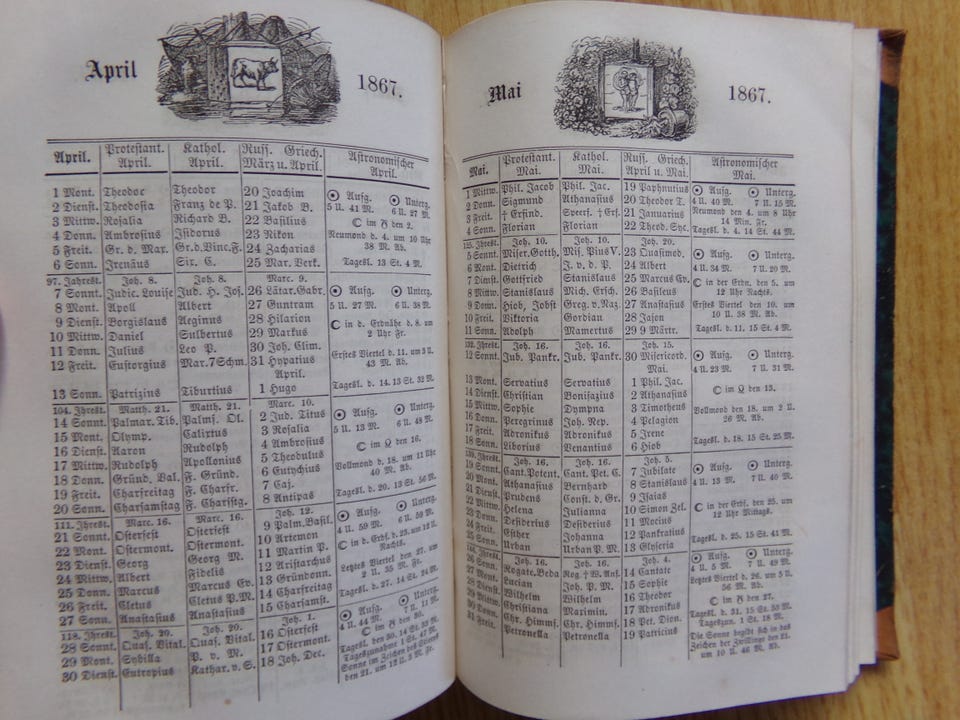 April 1867.
April. Protestant. April. Kathol. April. Russ. Griech. März u. April. Astronomischer April.
1 Mont. Theodor Theodor 20 Joachim ☉ Aufg. ☉ Unterg.
2 Dienst. Theodosia Franz de P. 21 Jakob B. 5 U. 41 M. 6 U. 27 M.
3 Mittw. Rosalia Richard B. 22 Basilius
4 Donn. Ambrosius Isidorus 23 Nikon Neumond d. 4. um 10 Uhr
5 Freit. Gr. d. Mar. Gr.d.Binc.F. 24 Zacharias 38 M. Ab.
6 Sonn. Irenäus Six. C. 25 Mar. Verk. Tagesl. 13 St. 4 M.
97. Jahrest. Joh. 8. Joh. 8. Marc. 9.
7 Sonnt. Judic. Louise Jud. H. Jos. 26 Lätar.Gabr. ☉ Aufg. ☉ Unterg.
8 Mont. Apoll Albert 27 Guntram 5 U. 27 M. 6 U. 38 M.
9 Dienst. Borgislaus Aeginus 28 Hilarion ☾ in d. Erdnähe d. 8. um
10 Mittw. Daniel Sulbertus 29 Markus 2 Uhr Fr.
11 Donn. Julius Leo P. 30 Joh. Clim. Erstes Viertel d. 11. um 5 U.
12 Freit. Eustorgius Mar. 7 Schm. 31 Hypatius 43 M. Ab.
April.
13 Sonn. Patrizius Tiburtius 1 Hugo Tagesl. d. 14. 13 St. 32 M.
104. Jhrest. Matth. 21. Matth. 21. Marc. 10.
14 Sonnt. Palmar. Tib. Palms. Ol. 2 Jud. Titus ☉ Aufg. ☉ Unterg.
15 Mont. Olymp. Calixtus 3 Rosalia 5 U. 13 M. 6 U. 48 M.
16 Dienst. Aaron Rudolph 4 Ambrosius
17 Mittw. Rudolph Apollonius 5 Theodulus Vollmond d. 18. um 11 Uhr
18 Donn. Gründ. Val. F. Gründ. 6 Eutychius 40 M. Ab.
19 Freit. Charfreitag F. Charfr. 7 Caj. Tagesl. d. 20. 13 St. 56 M.
20 Sonn. Charsamstag F. Charfstg. 8 Antipas
111. Jhrest. Marc. 16. Marc. 16. Joh. 12.
21 Sonnt. Osterfest Osterfest 9 Palm.Basil. ☉ Aufg. ☉ Unterg.
22 Mont. Ostermont. Ostermont. 10 Artemon 4 U. 59 M. 6 U. 59 M.
23 Dienst. Georg Georg M. 11 Martin P. ☾ in d. Erdf. d. 23. um 12 U.
24 Mittw. Albert Fidelis 12 Aristarchus Nachts.
25 Donn. Marcus Marcus Ev. 13 Gründonn. Letztes Viertel den 27. um
26 Freit. Cletus Cletus P.M. 14 Charfreitag 2 U. 35 M. Fr.
27 Sonn. Anastasius Anastasius 15 Charsamst. Tagesl. d. 27. 14 St. 24 M.
118. Jhrest. Joh. 20. Joh. 20. Joh. 1. ☉ Aufg. ☉ Unterg.
28 Sonnt. Quas. Vital. Quas. Vital. 16 Osterfest 4 U. 44 M. 7 U. 11 M.
29 Mont. Sybilla P. v. M. 17 Ostermont. Tagesl. den 30. 14 St. 33 M.
30 Dienst. Eutropius Kathar. v. S. 18 Joh. Dec. Tageszunahme 1 St. 47 M.
Sonne im Zeichen des Stieres
den 21. um 12 U. 3 M. Fr.
Mai 1867.
Mai. Protestant. Mai. Kathol. Mai. Russ. Griech. April u. Mai. Astronomischer Mai.
1 Mittw. Phil. Jacob Phil. Jac. 19 Paphnutius ☉ Aufg. ☉ Unterg.
2 Donn. Sigmund Athanasius 20 Theodor T. 4 U. 40 M. 7 U. 15 M.
3 Freit. † Erfind. Speerf. † Erf. 21 Januarius Neumond d. 4. um 8 Uhr
4 Sonn. Florian Florian 22 Theod. Syc. 14 Min. Fr.
Tagesl. d. 4. 14 St. 44 M.
125. Jhrest. Joh. 10. Joh. 10. Joh. 20.
5 Sonnt. Miser.Gotth. Mis. Pius V. 23 Quasimod. ☉ Aufg. ☉ Unterg.
6 Mont. Dietrich J. v. d. P. 24 Albert 4 U. 34 M. 7 U. 20 M.
7 Dienst. Gottfried Stanislaus 25 Marcus Ev. ☾ in der Erdn. den 5. um
8 Mittw. Stanislaus Mich. Ersch. 26 Basileus 12 Uhr Nachts.
9 Donn. Hiob, Jobst Greg. v. Naz. 27 Anastasius Erstes Viertel den 10. um
10 Freit. Viktoria Gordian 28 Jason 10 U. 38 M. Ab.
11 Sonn. Adolph Mamertus 29 9 Märtr. Tagesl. d. 11. 15 St. 4 M.
132. Jhrest. Joh. 16. Joh. 16. Joh. 15.
12 Sonnt. Jub. Pankr. Jub. Pankr. 30 Misericord. ☉ Aufg. ☉ Unterg.
Mai. 4 U. 23 M. 7 U. 31 M.
13 Mont. Servatius Servatius 1 Phil. Jac.
14 Dienst. Christian Bonifazius 2 Athanasius
15 Mittw. Sophie Dympna 3 Timotheus Vollmond den 18. um 2 U.
16 Donn. Peregrinus Joh. Nep. 4 Pelagion 26 M. Ab.
17 Freit. Adronikus Adronikus 5 Irene
18 Sonn. Liborius Venantius 6 Hiob Tagesl. d. 18. 15 St. 25 M.
139. Jhrest. Joh. 16. Joh. 16. Joh. 5.
19 Sonnt. Cant.Potent. Cant. Pet. C. 7 Jubilate ☉ Aufg. ☉ Unterg.
20 Mont. Athanasius Bernhard 8 Stanislaus 4 U. 13 M. 7 U. 40 M.
21 Dienst. Prudens Const. d. Gr. 9 Isaias
22 Mittw. Helena Julianna 10 Simon Zel. ☾ in der Erdf. den 25. um
23 Donn. Desiderius Desiderius 11 Mocius 12 Uhr Mittags.
24 Freit. Esther Johanna 12 Pankratius
25 Sonn. Urban Urban P. M. 13 Glyseria Tagesl. d. 25. 15 St. 41 M.
146. Jhrest. Joh. 16. Joh. 16. Joh. 4.
26 Sonnt. Rogate.Beda Rog. † W. Anf. 14 Cantate ☉ Aufg. ☉ Unterg.
27 Mont. Lucian Joh. P. M. 15 Sophie 4 U. 5 M. 7 U. 49 M.
28 Dienst. Wilhelm Wilhelm 16 Theodor Letztes Viertel d. 26. um 5 U.
29 Mittw. Christiana Maximin. 17 Adronikus 56 M. Ab.
30 Donn. Chr. Himmf. Chr. Himmf. 18 Pet. Dion. Tagesl. d. 31. 15 St. 53 M.
31 Freit. Petronella Petronella 19 Patricius Tageszun. 1 St. 18 M.
Die Sonne begibt sich in das
Zeichen der Zwillinge den 21.
um 10 U. 46 M. Ab.